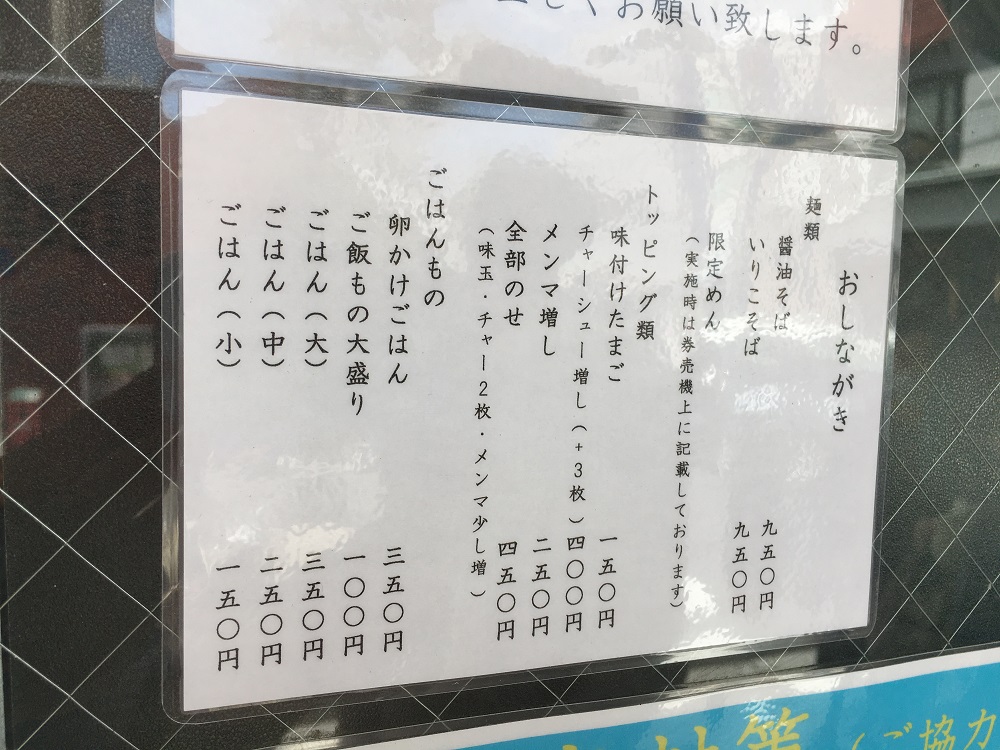 しくお願い致します。
おしながき
麺類
醤油そば 九五〇円
いりこそば 九五〇円
限定めん
(実施時は券売機上に記載しております)
トッピング類
味付けたまご 一五〇円
チャーシュー増し(+3枚) 四〇〇円
メンマ増し 二五〇円
全部のせ 四五〇円
(味玉・チャー2枚・メンマ少し増)
ごはんもの
卵かけごはん 三五〇円
ご飯もの大盛り 一〇〇円
ごはん(大) 三五〇円
ごはん(中) 二五〇円
ごはん(小) 一五〇円
(ご協力